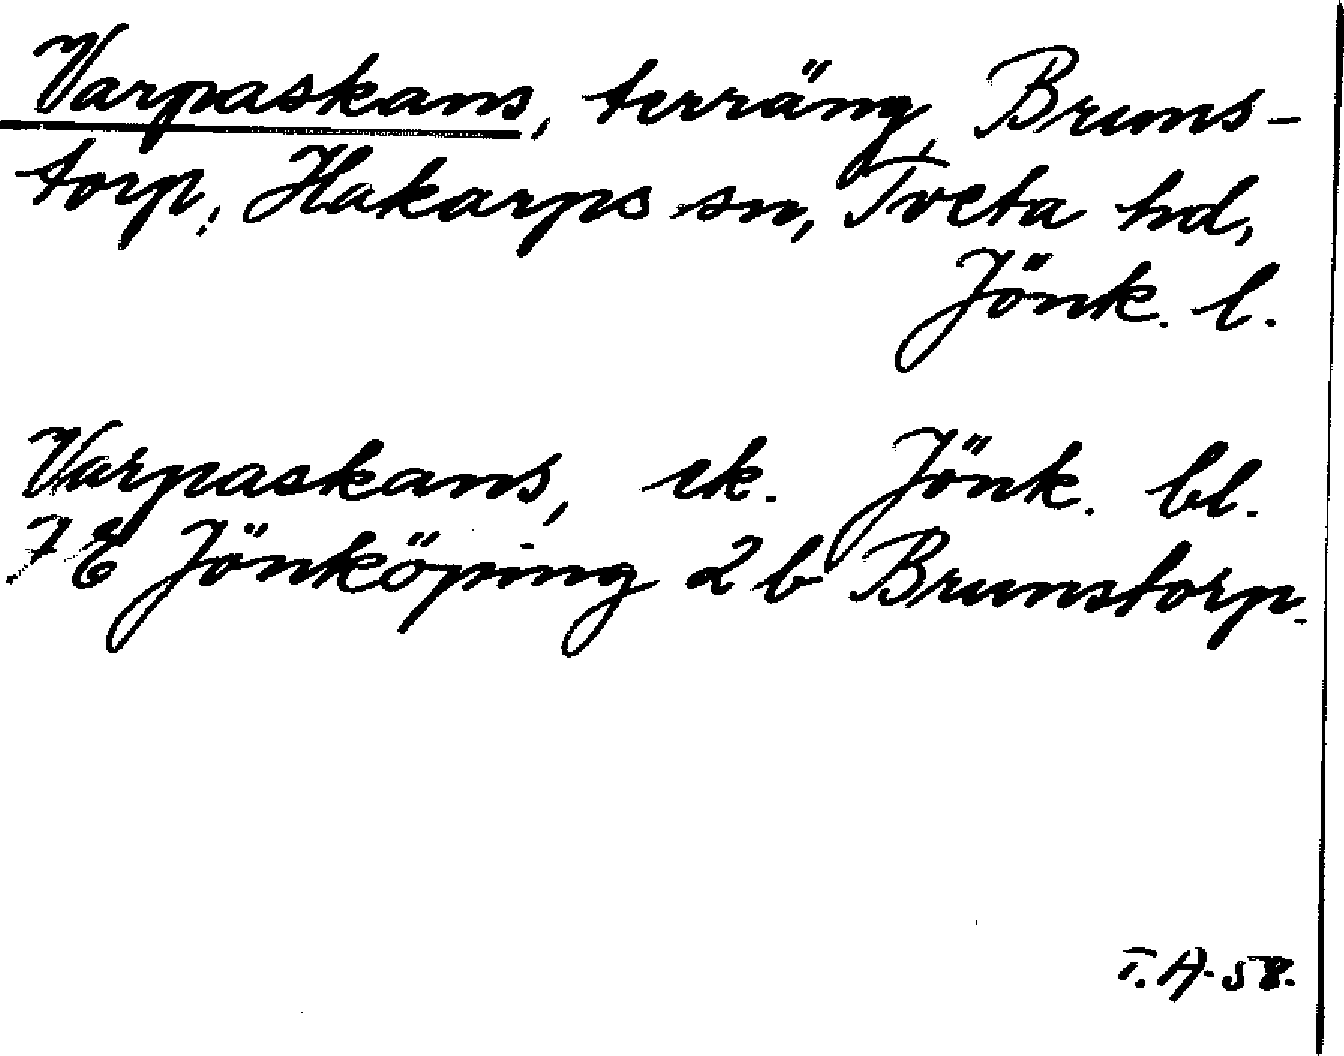 Varpaskans, terräng, Bruns-
torp, Hakarps sn, Tveta hd,
Jönk. l.
Varpaskans, ek. Jönk. bl.
7E Jönköping 2b Brunstorp.
T.A. 58.